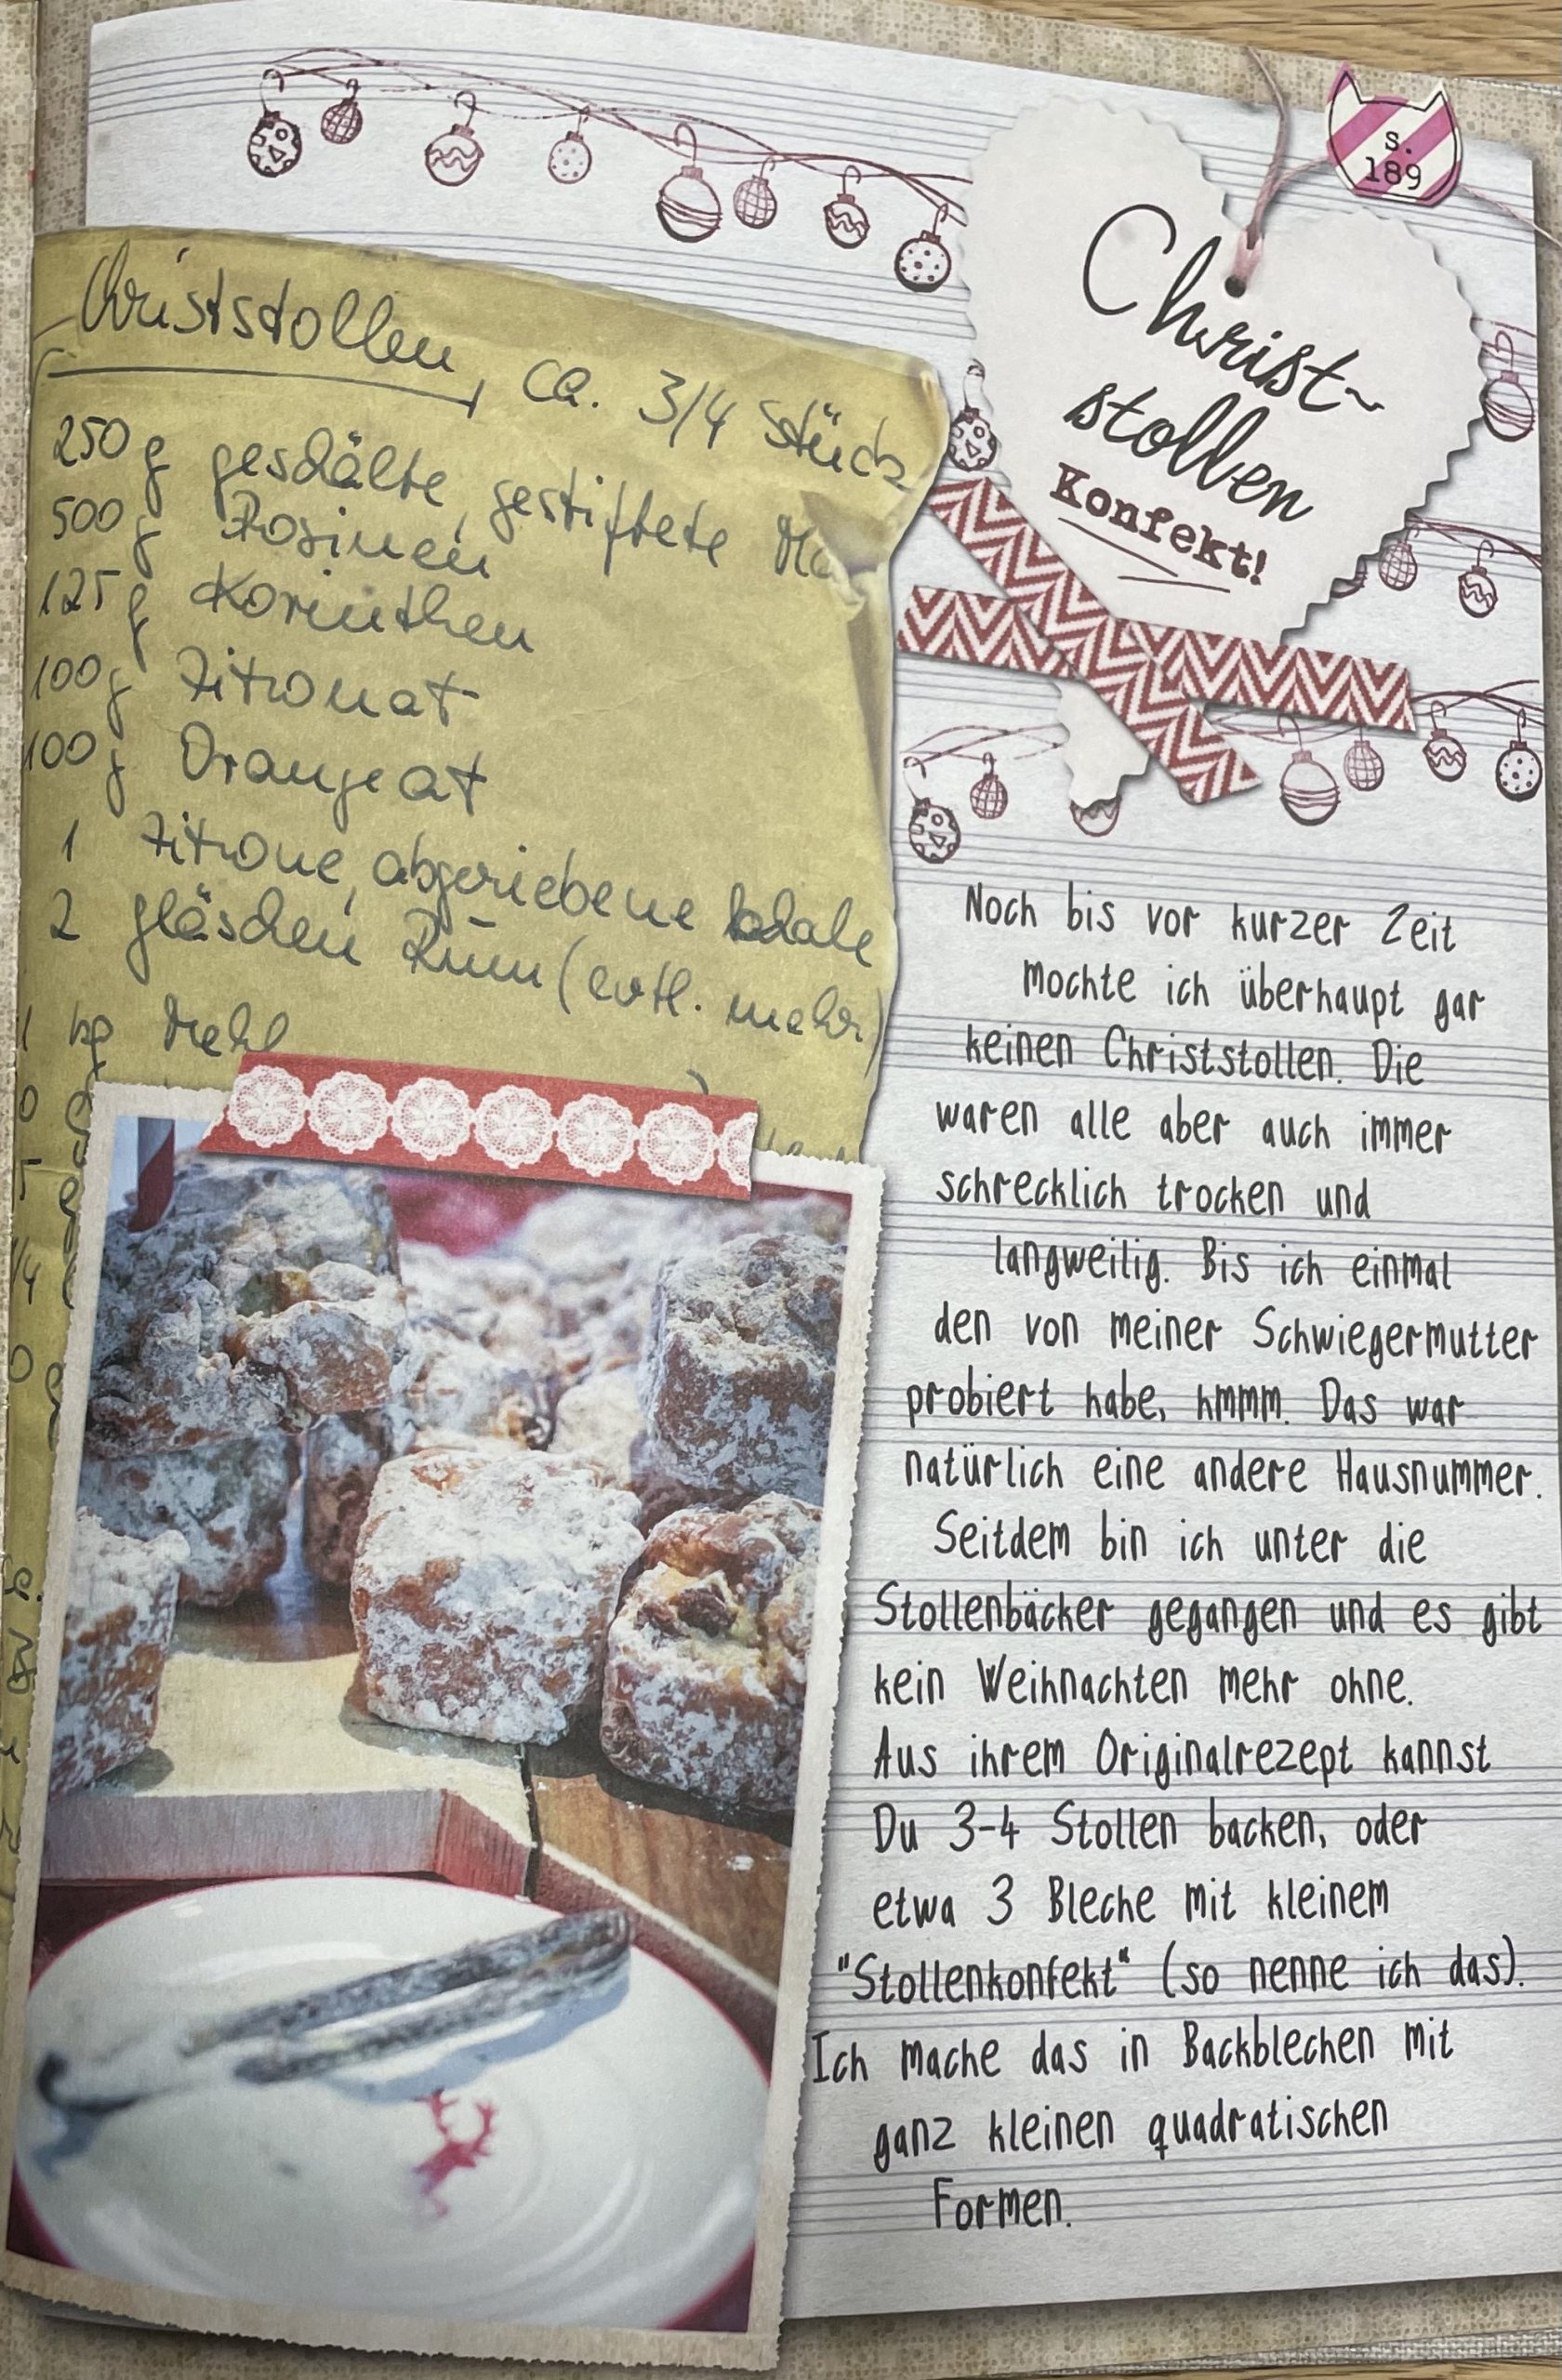 Christstollen, ca. 3/4 Stück
250 g geschälte, gestiftete
500 g Rosinen
125 g Korinthen
100 g Zitronat
100 g Orangeat
1 Zitrone, abgeriebene Schale
2 Gläschen Rum (evtl. mehr)
1 kg Mehl
s.
189
Christ-
stollen
Konfekt!
Noch bis vor kurzer Zeit
mochte ich überhaupt gar
keinen Christstollen. Die
waren alle aber auch immer
schrecklich trocken und
langweilig. Bis ich einmal
den von meiner Schwiegermutter
probiert habe, hmmm. Das war
natürlich eine andere Hausnummer.
Seitdem bin ich unter die
Stollenbäcker gegangen und es gibt
kein Weihnachten mehr ohne.
Aus ihrem Originalrezept kannst
Du 3-4 Stollen backen, oder
etwa 3 Bleche mit kleinem
"Stollenkonfekt" (so nenne ich das).
Ich mache das in Backblechen mit
ganz kleinen quadratischen
Formen.